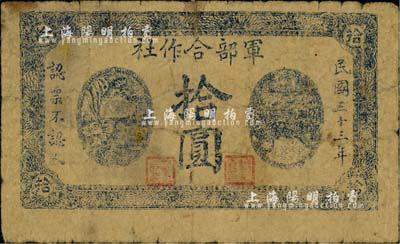 上海陽明拍賣
www.yangmingauction.com
軍部合作社
拾
拾
民國三十三年
拾圓
認票不認人
上海陽明拍賣
www.yangmingauction.com
拾
拾
上海陽明拍賣
www.yangmingauction.com